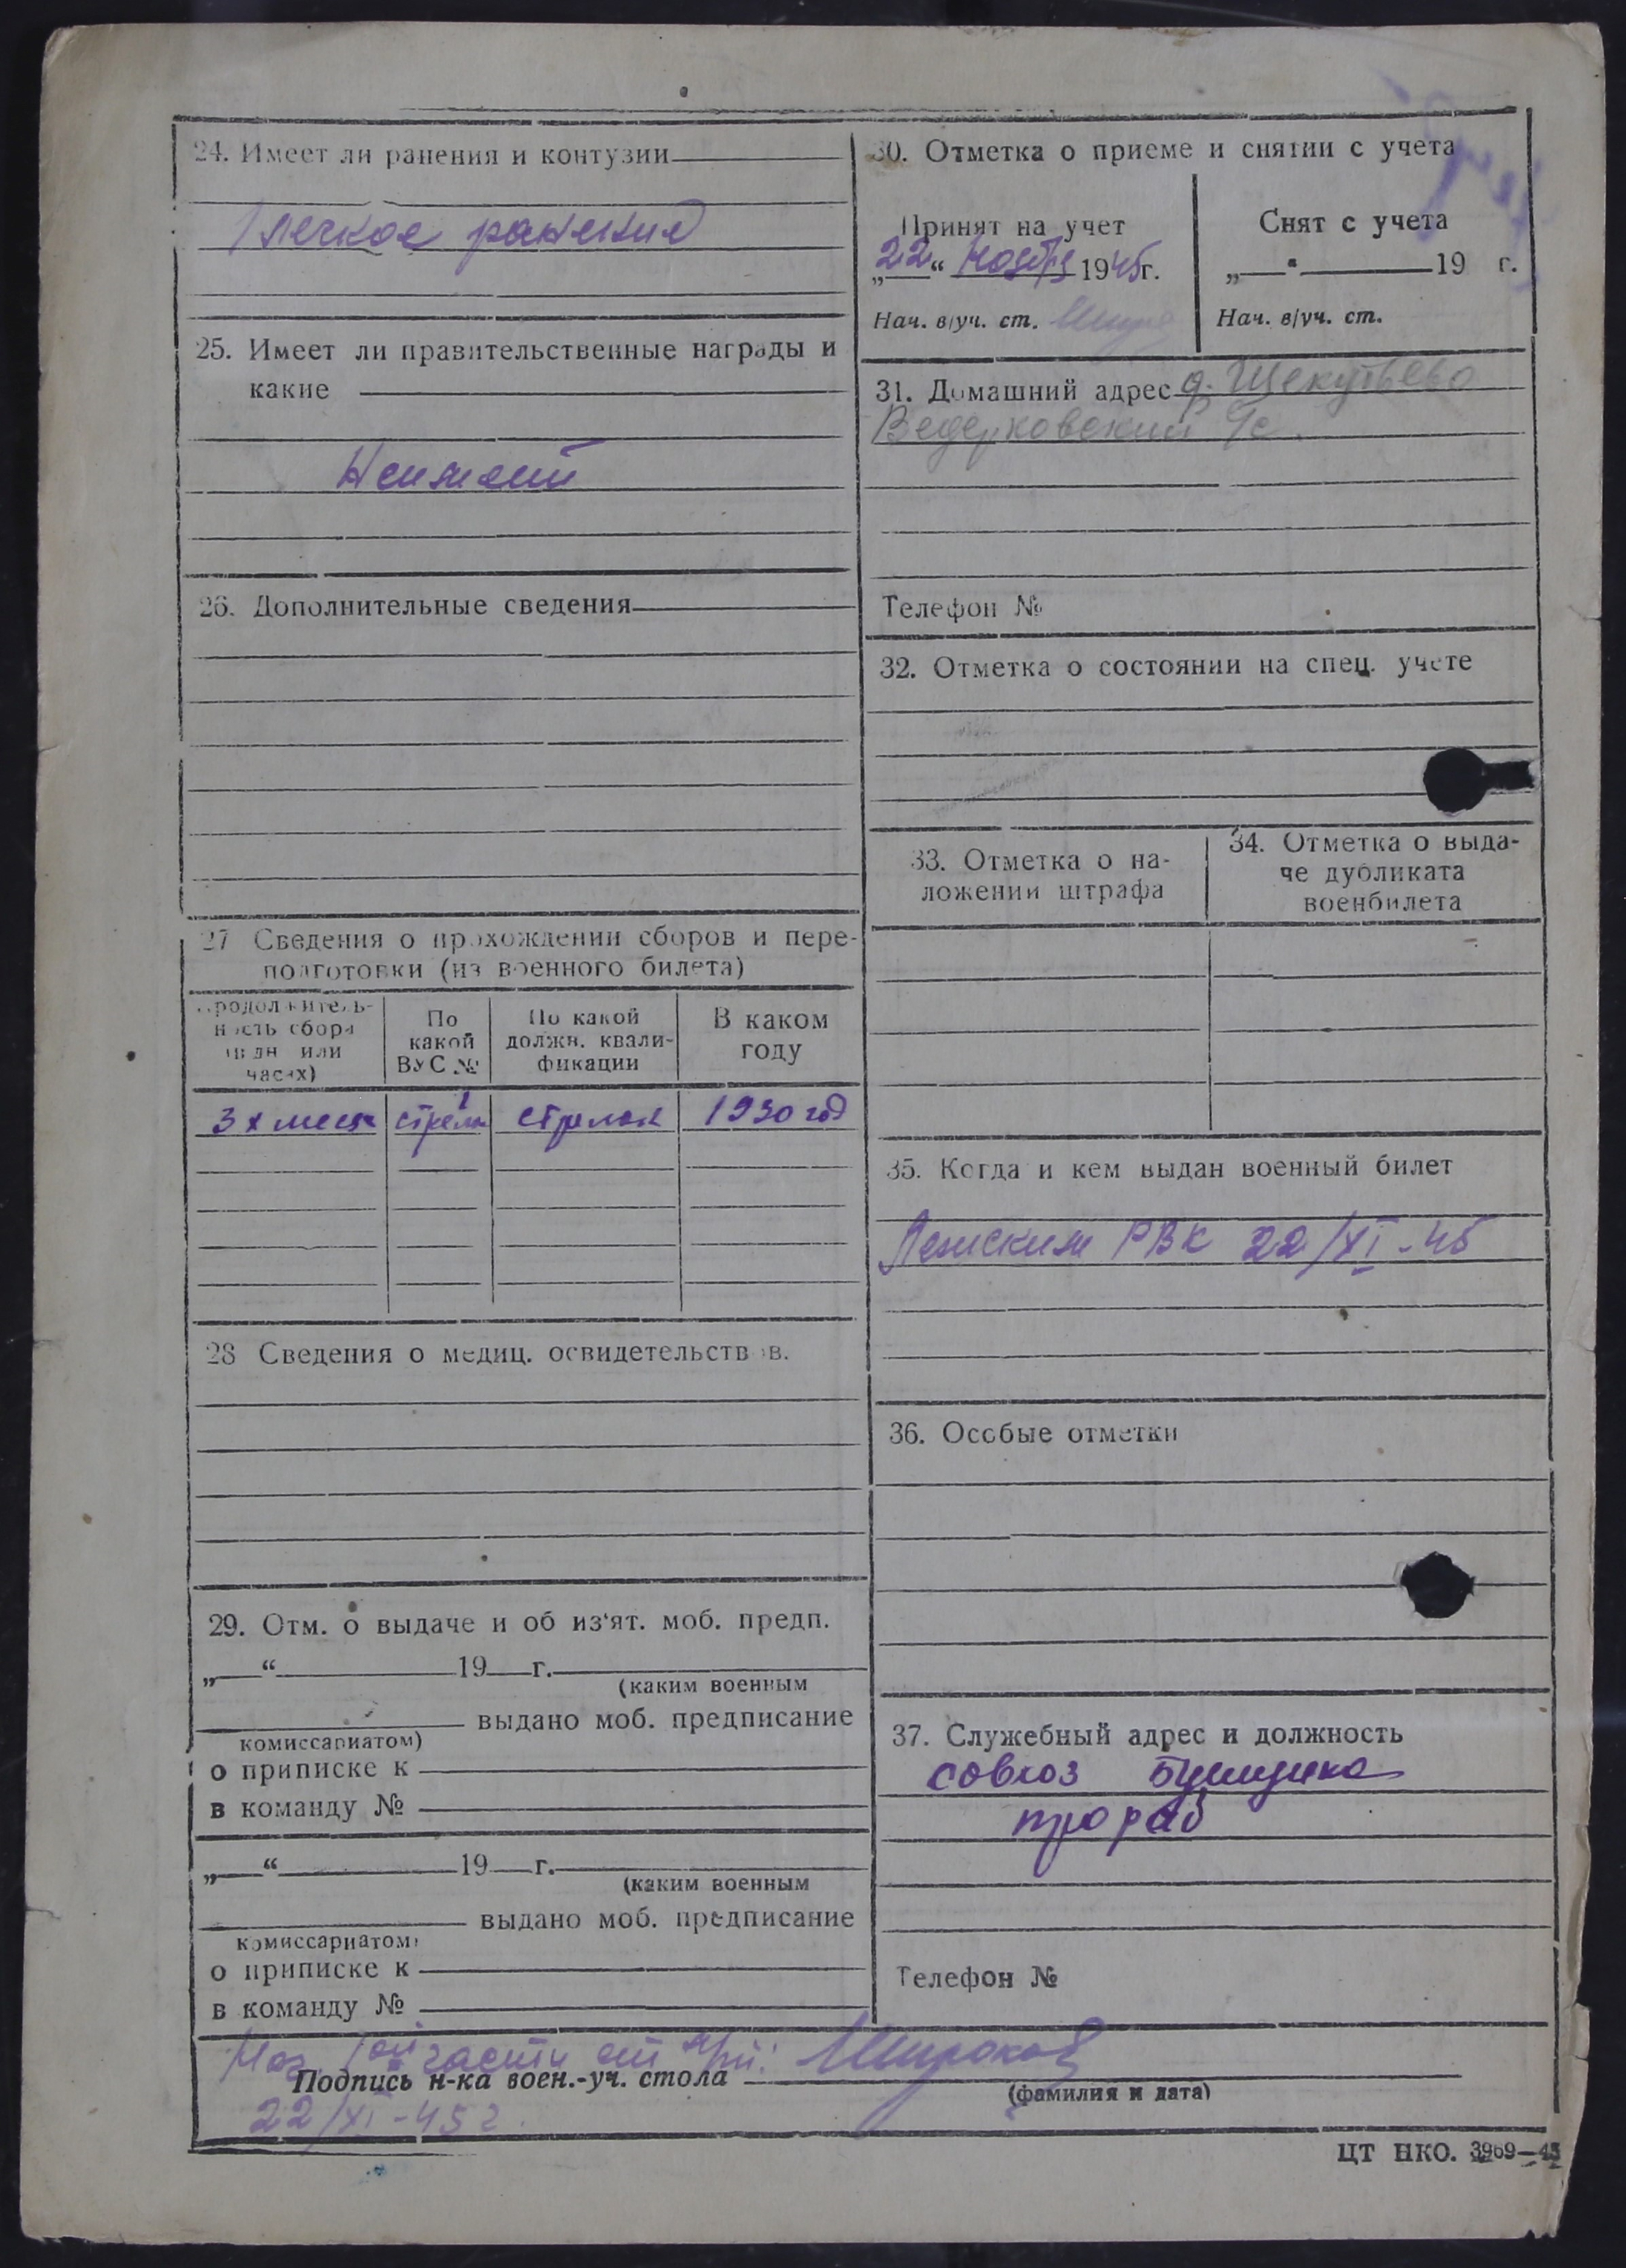 24. Имеет ли ранения и контузии
1 легкое ранение
25. Имеет ли правительственные награды и
какие
Неимеет
26. Дополнительные сведения
27 Сведения о прохождении сборов и пере-
подготовки (из военного билета)
Продолжитель-
ность сбора
(в дн или
часах)
По
какой
ВУС №
По какой
должн. квали-
фикации
В каком
году
3х меся стрелк стрелок 1930 год
28 Сведения о медиц. освидетельствов.
29. Отм. о выдаче и об из‘ят. моб. предп.
„ “ 19 г.
(каким военным
выдано моб. предписание
комиссариатом)
о приписке к
в команду №
„ “ 19 г.
(каким военным
выдано моб. предписание
комиссариатом)
о приписке к
в команду №
30. Отметка о приеме и снятии с учета
Принят на учет
„22“ Ноября 1945г.
Нач. в/уч. ст.
Снят с учета
„ “ 19 г.
Нач. в/уч. ст.
31. Домашний адрес д. Щекутьево
Ведерковский с/с.
Телефон №
32. Отметка о состоянии на спец. учете
33. Отметка о на-
ложении штрафа
34. Отметка о выда-
че дубликата
военбилета
35. Когда и кем выдан военный билет
РВК 22/XI-45
36. Особые отметки
37. Служебный адрес и должность
совхоз Бушуиха
прораб
Телефон №
Нач. 1ой части ст л-т: Широков
Подпись н-ка воен.-уч. стола
(фамилия и дата)
22/XI-45г.
ЦТ НКО. 3969—45